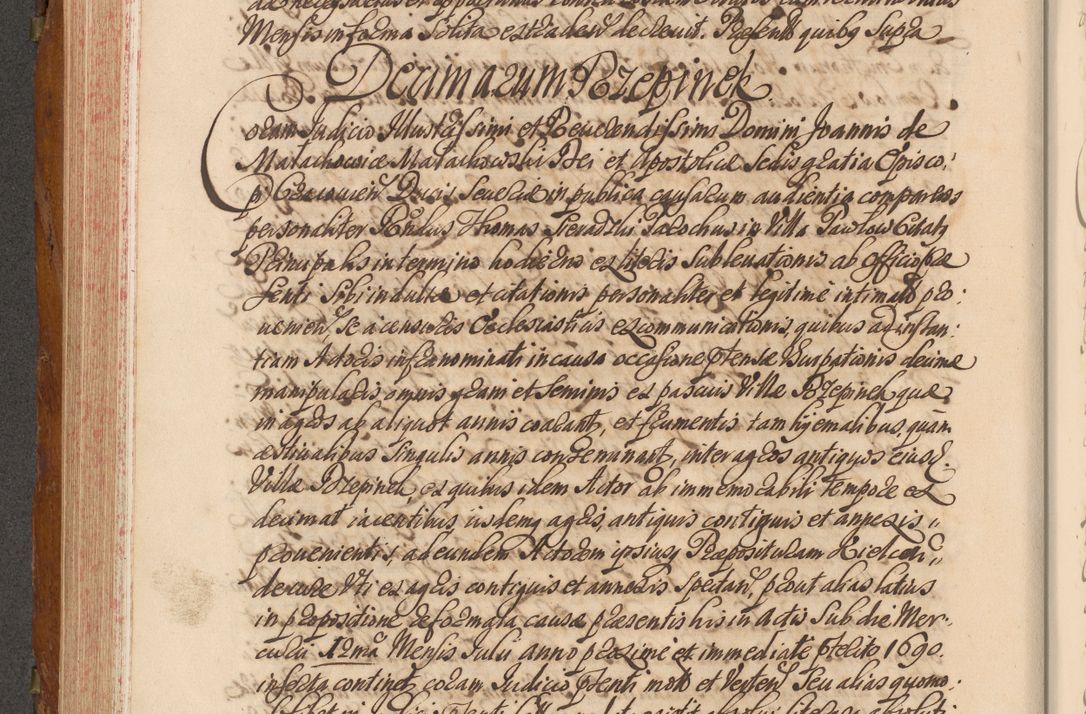 Mensis in forma solita extraden̄ decrevit. Pręsentib quibꝰ supra
Decimarum Przepinek
Coram Judicio Illustrissimi et Reverendissimi Domini Joannis de
Małachowice Małachowski Dei et Apostolicæ Sedis gratia Episco:
pi Cracovien̄ Ducis Severiæ in publica causarum audientia comparens
personaliter Rn̄dus Thomas Parochus in Villa Pawłow Citatꝰ
Principalis in termino hodierno ex literis Sublevationis ab Officio præ
senti Sibi indultæ et citationis personaliter et legitime intimatis pro:
venien̄ se a censuris Ecclesiasticis excommunicationis, quibus ad instan:
tiam Actoris infranominati in causa occasione prætensæ Usurpationis decimæ
manipularis, omnis grani et seminis ex pascuis Villæ Przepinek quæ
in agros ab aliquot annis coarant, et frumentis tam hyemalibus, quam
æstivalibus singulis annis conseminant, inter agros antiquos eiusd.
Villæ Przepinek, ex quibus idem Actor ab immemorabili tempore ex
decimat iacentibus iisdemq agris, antiquis contiguis et annexis
provenientis, ad eundem Actorem ipsiusq Præposituram Kielcen̄
de iure Uti ex agris contiguis et annexis Spectan̄, prout alias latius
in propositione reformata causæ præsentis his in Actis Sub die Mer-
curii 12ma Mensis Julii anno proxime et immediate prælito 1690.
inserta continet, coram Judicio pn̄ti mott et Verten̄ Seu alias quomo: